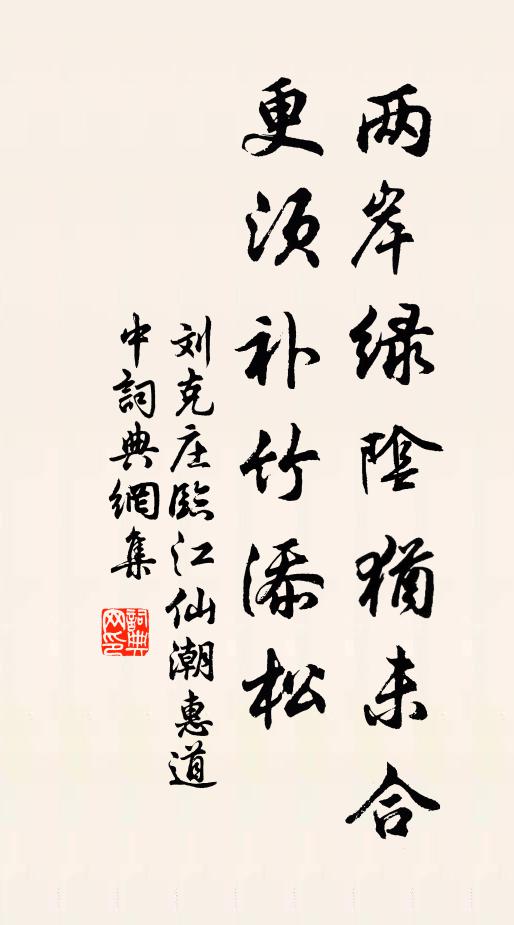 两岸绿陰猶未合
更须补竹添松
刘克庄臨江仙潮惠道
中詞典網集
詞典網印